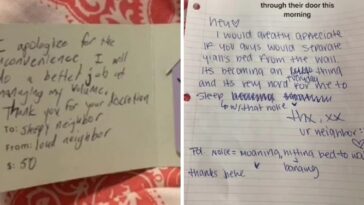 I apologize for the
inconvenience. I will
do a better job at
managing my volume.
Thank you for your discretion
To: sleepy neighbor
From: loud neighbor
$: 50
through their door this
morning
Hey♡
I would greatly appreciate
if you guys would separate
y'alls bed from the wall.
Its becoming an everyday thing
and its very hard for me to
sleep
w/ that noise
Thx, xx
ur neighbor
P.S. noise = moaning, hitting bed to wall
banging
thanks hehe